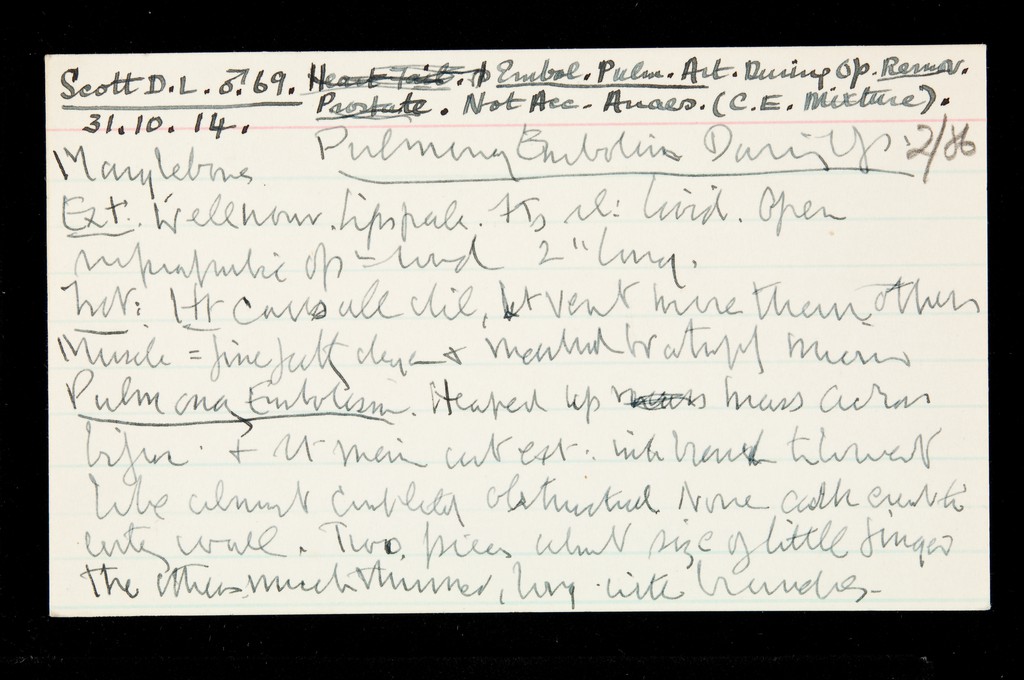 Scott D.L. ♂. 69. Heart Fail. & Embol. Pulm. Art. During Op. Remov.
Prostate. Not Acc. Anaes. (C.E. Mixture).
31.10.14.
Pulmonary Embolism During Op. 2/86
Marylebone
Ext. Well nour. Lips pale. livid. Open
suprapubic op = wound 2" long.
Int: Ht cavs all dil, Rt vent more than others
Muscle = fine fatty degen + marked br atrophy micro
Pulmonary Embolism. Heaped up mass across
bifur. + Rt main ext. into branch to lowest
lobe almost completely obstructed. None adherent to
artery wall. Two pieces about size of little finger
the others much thinner, long with branches.